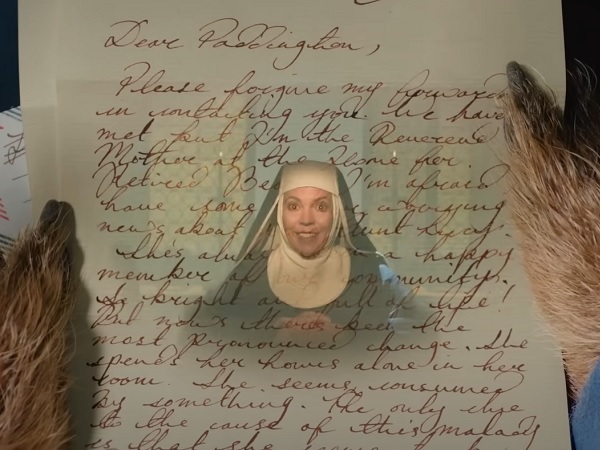 Dear Paddington,
Please forgive my forward
in contacting you. We have
met but I'm the Reverend
Mother at the Home for
Retired Be I'm afraid
have some worrying
news about Aunt Lucy.
She's always a happy
member of our community.
So bright and full of life!
But now there's been the
most pronounced change. She
spends her hours alone in her
room. She seems consumed
by something. The only clue
to the cause of this malady
is that she seems to